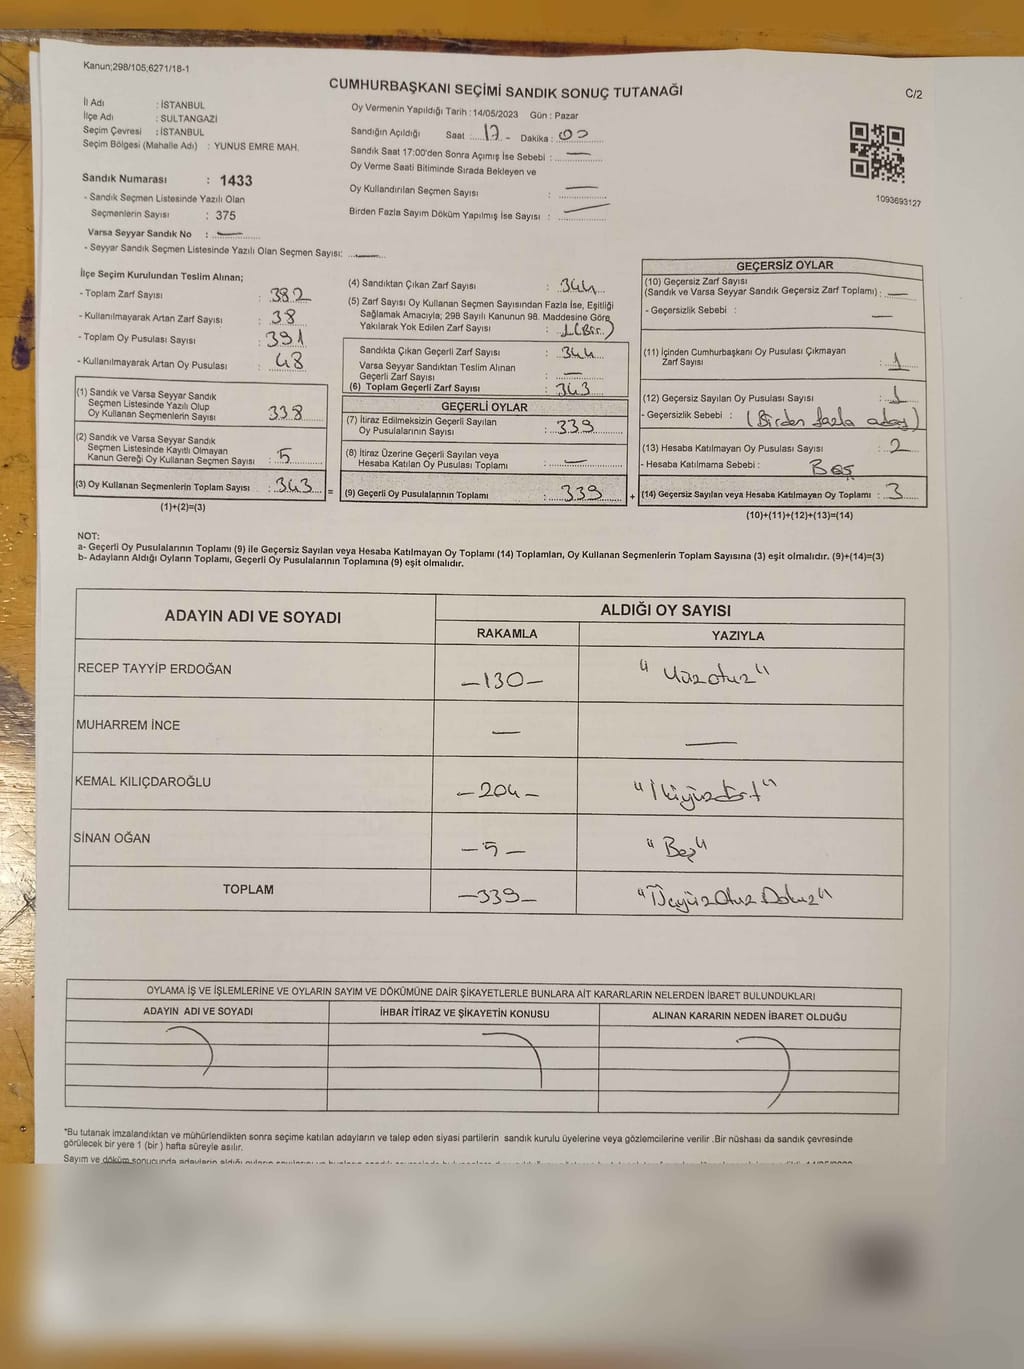 Kanun;298/105,6271/18-1
CUMHURBAŞKANI SEÇİMİ SANDIK SONUÇ TUTANAĞI
C/2
İl Adı : İSTANBUL
İlçe Adı : SULTANGAZİ
Seçim Çevresi : İSTANBUL
Seçim Bölgesi (Mahalle Adı) : YUNUS EMRE MAH.
Sandık Numarası : 1433
- Sandık Seçmen Listesinde Yazılı Olan
Seçmenlerin Sayısı : 375
Varsa Seyyar Sandık No : —
- Seyyar Sandık Seçmen Listesinde Yazılı Olan Seçmen Sayısı: —
Oy Vermenin Yapıldığı Tarih : 14/05/2023 Gün : Pazar
Sandığın Açıldığı Saat : 17 - Dakika : 00
Sandık Saat 17:00'den Sonra Açımış İse Sebebi : —
Oy Verme Saati Bitiminde Sırada Bekleyen ve
Oy Kullandırılan Seçmen Sayısı : —
Birden Fazla Sayım Döküm Yapılmış İse Sayısı : —
1093693127
İlçe Seçim Kurulundan Teslim Alınan;
- Toplam Zarf Sayısı : 382
- Kullanılmayarak Artan Zarf Sayısı : 38
- Toplam Oy Pusulası Sayısı : 391
- Kullanılmayarak Artan Oy Pusulası : 48
(1) Sandık ve Varsa Seyyar Sandık
Seçmen Listesinde Yazılı Olup
Oy Kullanan Seçmenlerin Sayısı : 338
(2) Sandık ve Varsa Seyyar Sandık
Seçmen Listesinde Kayıtlı Olmayan
Kanun Gereği Oy Kullanan Seçmen Sayısı : 5
(3) Oy Kullanan Seçmenlerin Toplam Sayısı : 343 =
(1)+(2)=(3)
(4) Sandıktan Çıkan Zarf Sayısı : 344
(5) Zarf Sayısı Oy Kullanan Seçmen Sayısından Fazla İse, Eşitliği
Sağlamak Amacıyla; 298 Sayılı Kanunun 98. Maddesine Göre
Yakılarak Yok Edilen Zarf Sayısı : 1 (Bir)
Sandıkta Çıkan Geçerli Zarf Sayısı : 344
Varsa Seyyar Sandıktan Teslim Alınan
Geçerli Zarf Sayısı : —
(6) Toplam Geçerli Zarf Sayısı : 343
GEÇERLİ OYLAR
(7) İtiraz Edilmeksizin Geçerli Sayılan
Oy Pusulalarının Sayısı : 339
(8) İtiraz Üzerine Geçerli Sayılan veya
Hesaba Katılan Oy Pusulası Toplamı : —
(9) Geçerli Oy Pusulalarının Toplamı : 339 +
GEÇERSİZ OYLAR
(10) Geçersiz Zarf Sayısı
(Sandık ve Varsa Seyyar Sandık Geçersiz Zarf Toplamı) : —
- Geçersizlik Sebebi : —
(11) İçinden Cumhurbaşkanı Oy Pusulası Çıkmayan
Zarf Sayısı : 1
(12) Geçersiz Sayılan Oy Pusulası Sayısı : 1
- Geçersizlik Sebebi : (Birden fazla aday)
(13) Hesaba Katılmayan Oy Pusulası Sayısı : 2
- Hesaba Katılmama Sebebi : Boş
(14) Geçersiz Sayılan veya Hesaba Katılmayan Oy Toplamı : 3
(10)+(11)+(12)+(13)=(14)
NOT:
a- Geçerli Oy Pusulalarının Toplamı (9) ile Geçersiz Sayılan veya Hesaba Katılmayan Oy Toplamı (14) Toplamları, Oy Kullanan Seçmenlerin Toplam Sayısına (3) eşit olmalıdır. (9)+(14)=(3)
b- Adayların Aldığı Oyların Toplamı, Geçerli Oy Pusulalarının Toplamına (9) eşit olmalıdır.
ADAYIN ADI VE SOYADI
ALDIĞI OY SAYISI
RAKAMLA YAZIYLA
RECEP TAYYİP ERDOĞAN —130— "Yüzotuz"
MUHARREM İNCE — —
KEMAL KILIÇDAROĞLU —204— "İkiyüzdört"
SİNAN OĞAN —5— "Beş"
TOPLAM —339— "ÜçyüzOtuzDokuz"
OYLAMA İŞ VE İŞLEMLERİNE VE OYLARIN SAYIM VE DÖKÜMÜNE DAİR ŞİKAYETLERLE BUNLARA AİT KARARLARIN NELERDEN İBARET BULUNDUKLARI
ADAYIN ADI VE SOYADI İHBAR İTİRAZ VE ŞİKAYETİN KONUSU ALINAN KARARIN NEDEN İBARET OLDUĞU
*Bu tutanak imzalandıktan ve mühürlendikten sonra seçime katılan adayların ve talep eden siyasi partilerin sandık kurulu üyelerine veya gözlemcilerine verilir .Bir nüshası da sandık çevresinde
görülecek bir yere 1 (bir ) hafta süreyle asılır.
Sayım ve döküm sonucunda adayların aldığı